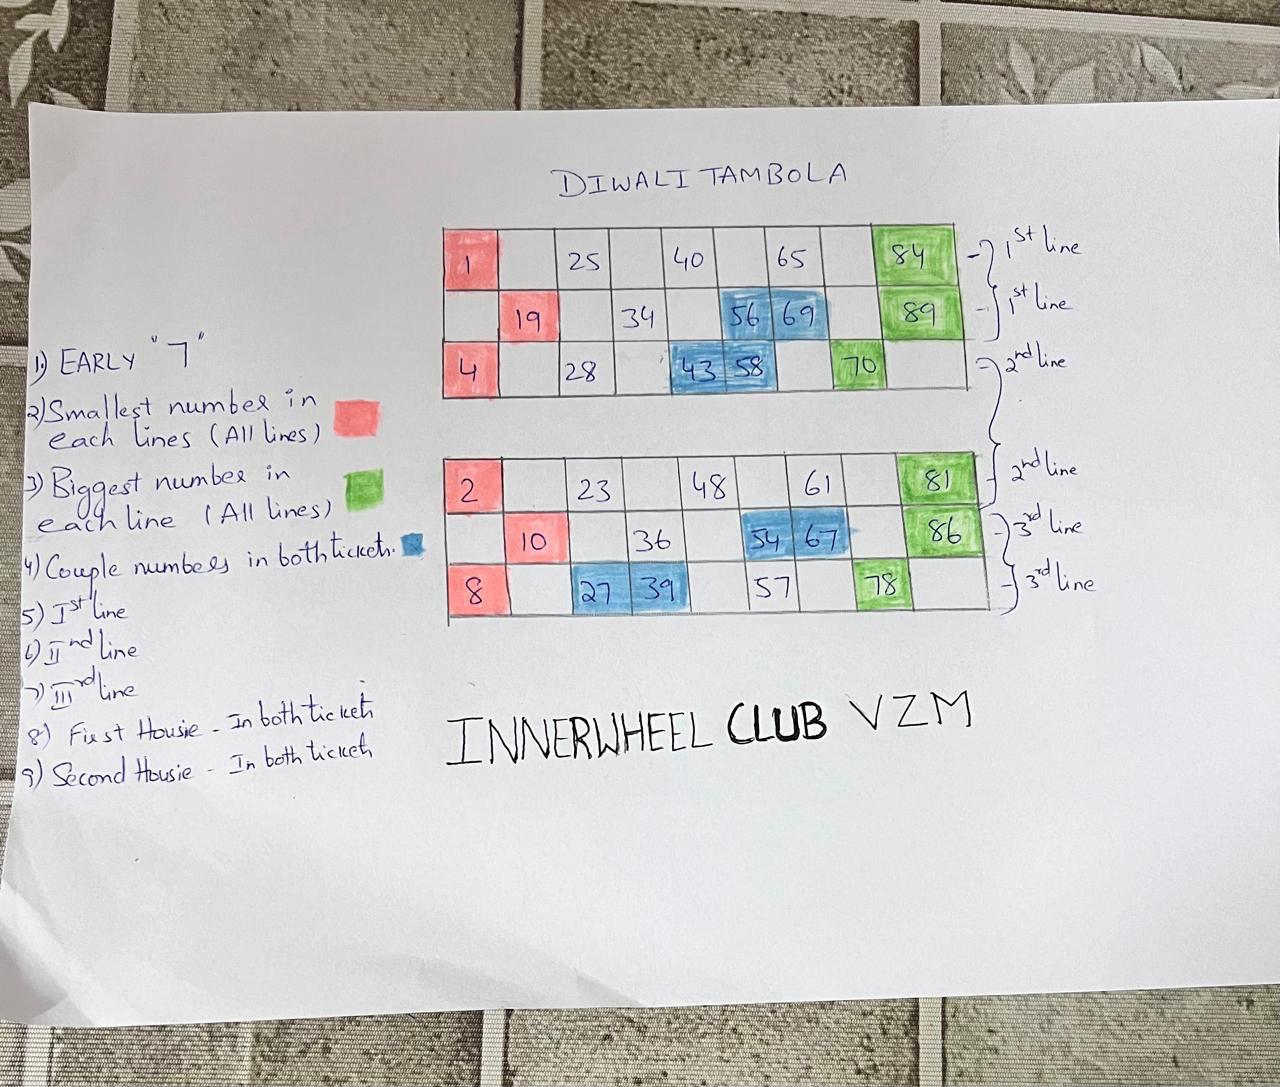 DIWALI TAMBOLA
1 25 40 65 84 1st line
19 34 56 69 89 1st line
4 28 43 58 70 2rd line
2 23 48 61 81 2nd line
10 36 54 67 86 3rd line
8 27 39 57 78 3rd line
1) EARLY "7"
2) Smallest number in
each lines (All lines)
3) Biggest number in
each line (All lines)
4) Couple numbers in both ticket.
5) Ist line
6) IInd line
7) IIIrd line
8) First Housie - In both ticket
9) Second Housie - In both ticket
INNERWHEEL CLUB VZM